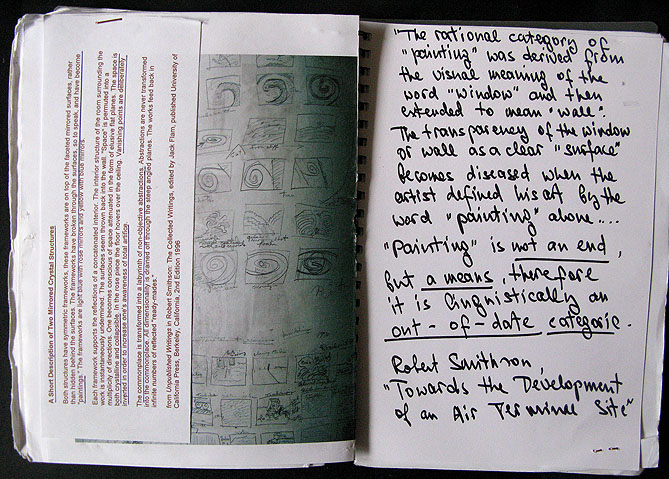 A Short Description of Two Mirrored Crystal Structures
Both structures have symmetric frameworks, these frameworks are on top of the faceted mirrored surfaces, rather
than hidden behind the surfaces. The frameworks have broken through the surfaces, so to speak, and have become
"paintings." The frameworks are light blue with rose mirrors and yellow with blue mirrors.
Each framework supports the reflections of a concatenated interior. The interior structure of the room surrounding the
work is instantaneously undermined. The surfaces seem thrown back into the wall. "Space" is permuted into a
multiplicity of directions. One becomes conscious of space attenuated in the form of elusive flat planes. The space is
both crystalline and collapsible. In the rose piece the floor hovers over the ceiling. Vanishing points are deliberately
inverted in order to increase one's awareness of total artifice.
The commonplace is transformed into a labyrinth of non-objective abstractions. Abstractions are never transformed
into the commonplace. All dimensionality is drained off through the steep angled planes. The works feed back in
infinite numbers of reflected "ready-mades."
from Unpublished Writings in Robert Smithson: The Collected Writings, edited by Jack Flam, published University of
California Press, Berkeley, California, 2nd Edition 1996
"The rational category of
"painting" was derived from
the visual meaning of the
word "window" and then
extended to mean "wall."
The transparency of the window
or wall as a clear "surface"
becomes diseased when the
artist defines his art by the
word "painting" alone....
"Painting" is not an end,
but a means, therefore
it is linguistically an
out-of-date categorie.
Robert Smithson,
"Towards the Development
of an Air Terminal Site"